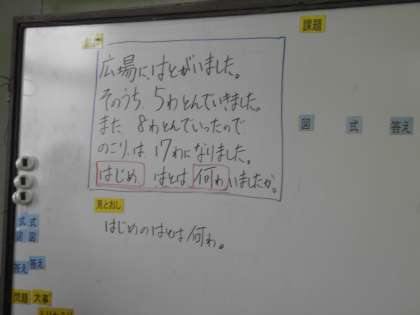 課題
広場にはとがいました。
そのうち、5わとんでいきました。
また、8わとんでいったので
のこりは、17わになりました。
はじめ はとは何わいましたか。
図 式 答え
見とおし
はじめのはとは何わ。
式 式
図 図
答え 答え
問題 大事